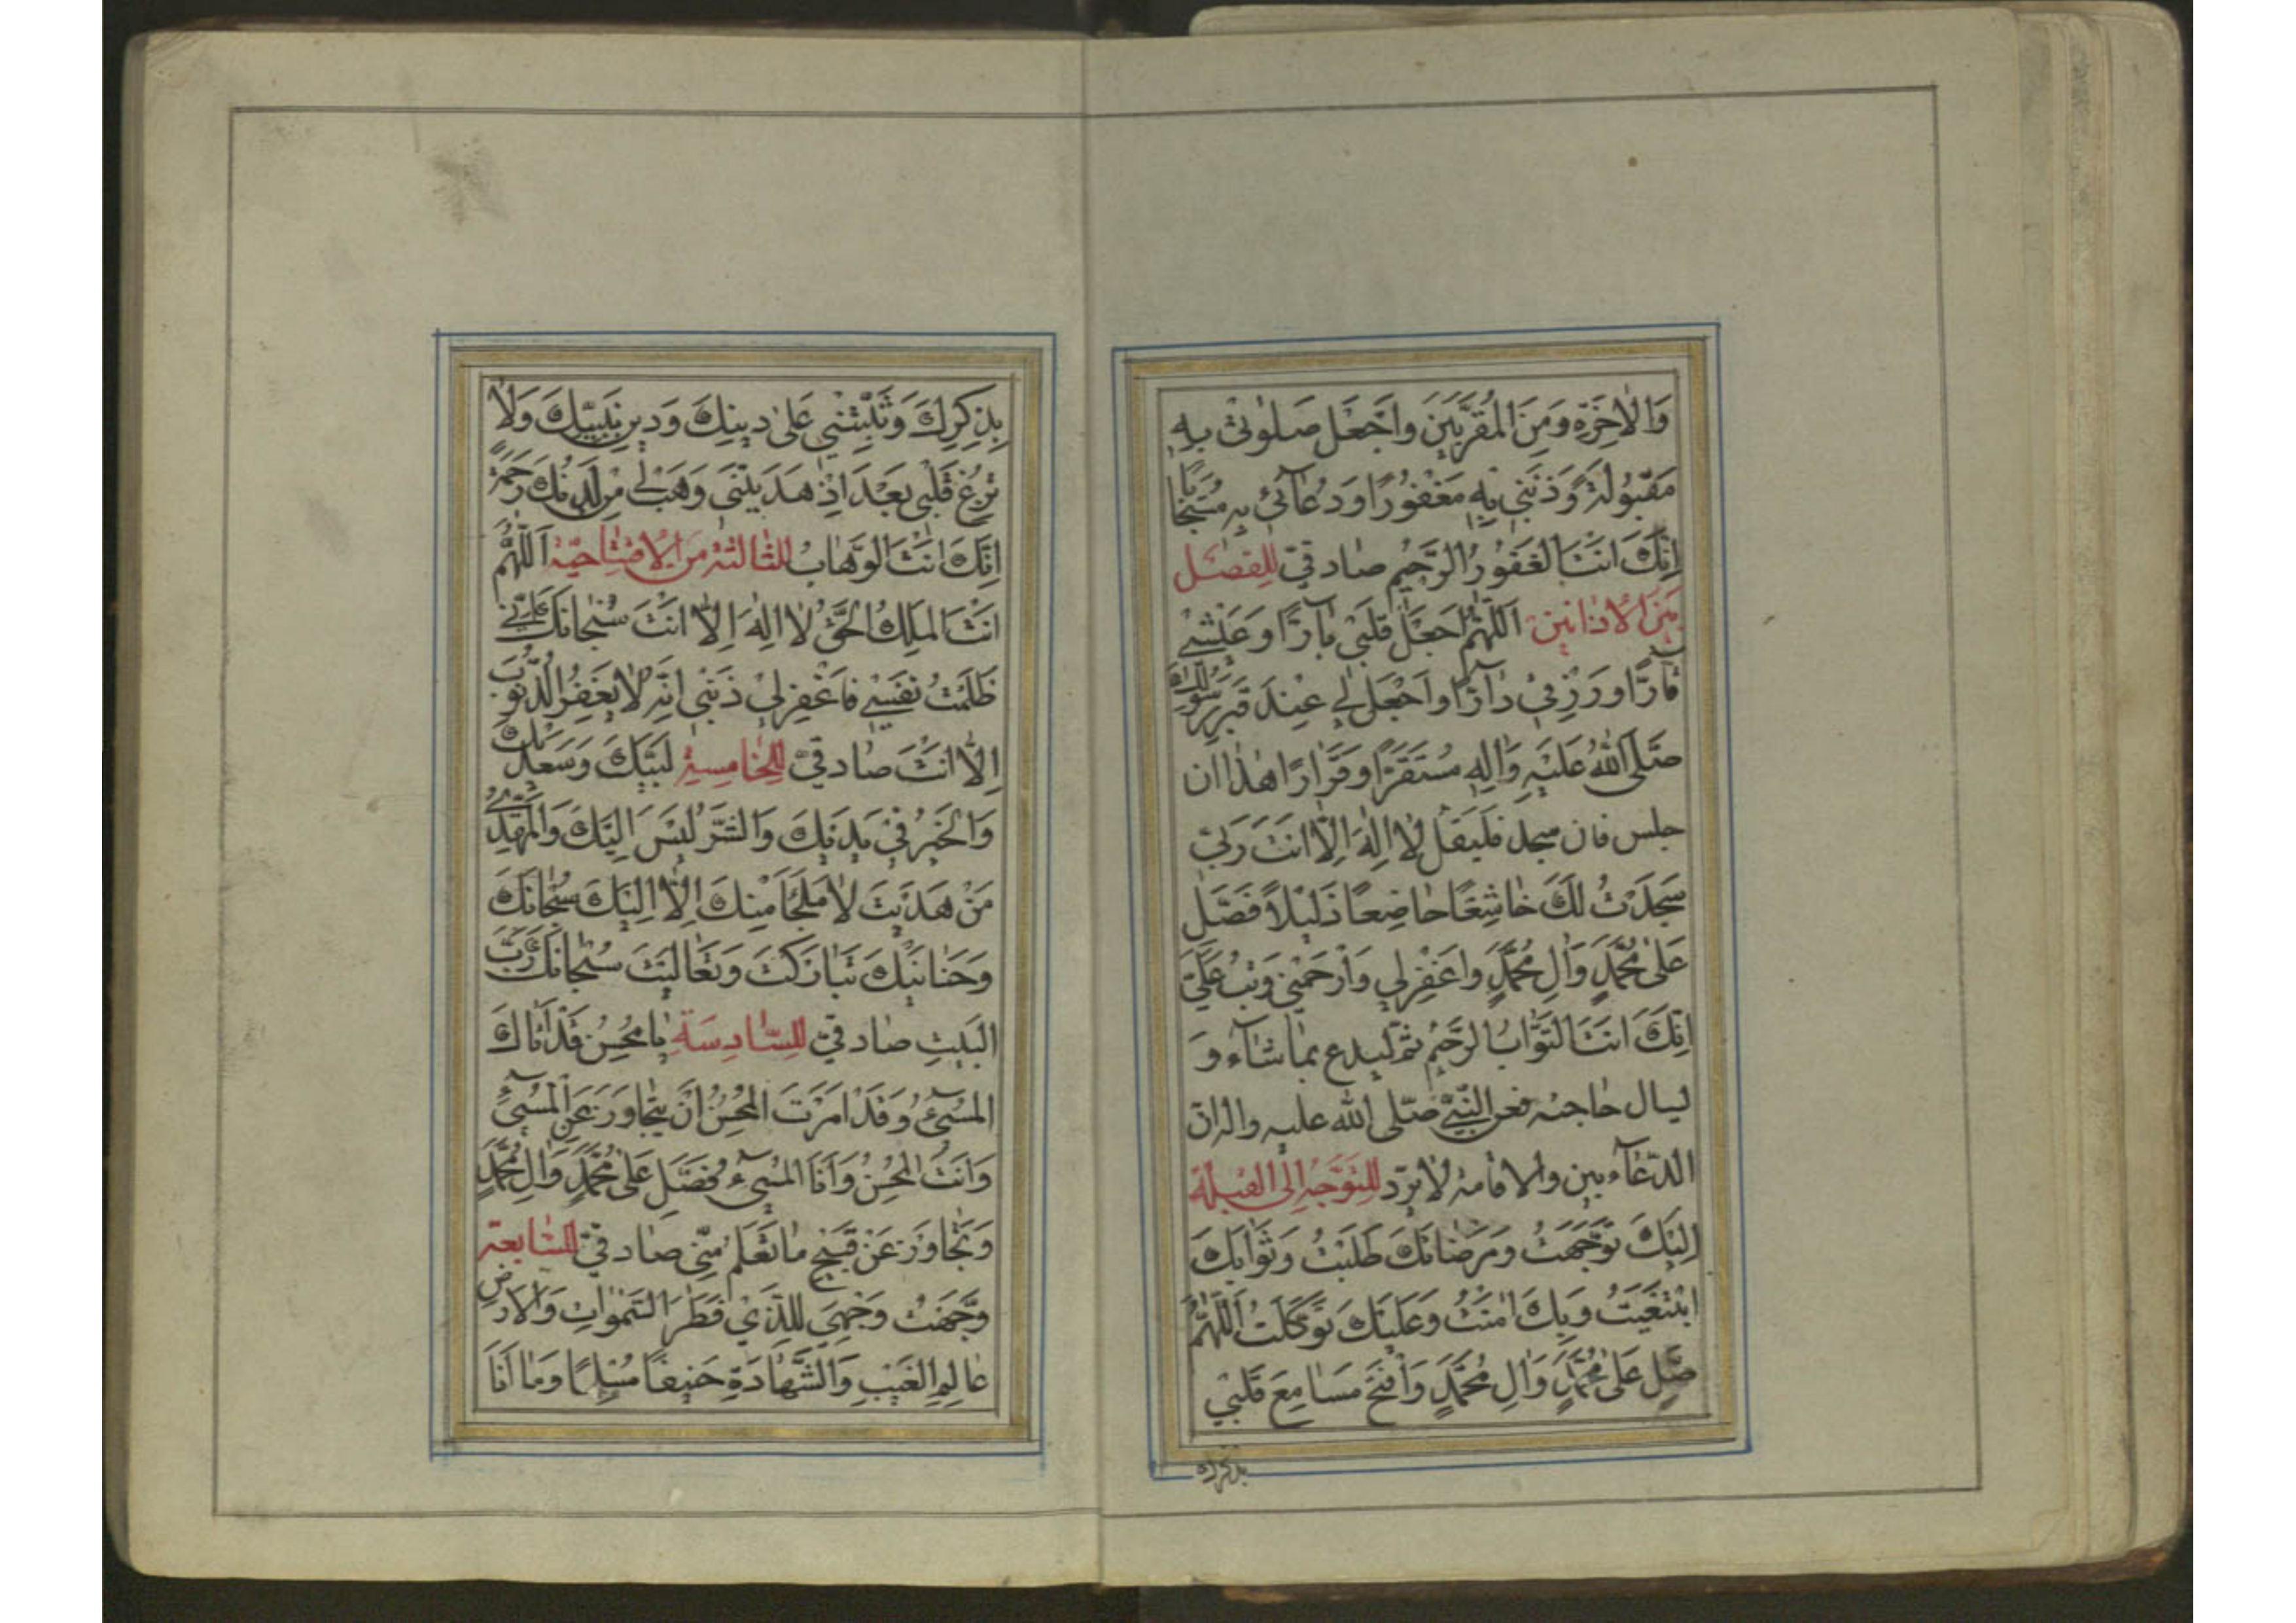 وَالْاخِرَةِ وَمِنَ الْمُقَرَّبَينَ وَاجْعَل صَلٰوتى بِهِ
مَقْبُولَةً وَذَنبى بِهِ مَغْفُورًا وَدُعآئى بِهِ مُسْتَجابًا
اِنَّكَ اَنتَ الغَفُورُ الرَّحيمُ صٰادقيّ للفصل
بَينَ الاَذانَينِ اَللّهُمَّ اجعَل قَلبى بٰارًّا وَعَيْشى
قٰارًّا وَرِزقي دٰارًّا وَاجْعَل لى عِنْدَ قَبرِ رَسُولِ اللهِ
صَلَّى اللهُ عَلَيْهِ وَاٰلِهِ مُسْتَقَرًّا وَقَرٰارًا هٰذا ان
جلس فان سجد فليقل لٰا اِلٰهَ اِلّٰا اَنتَ رَبّي
سَجَدْتُ لَكَ خٰاشِعًا خٰاضِعًا ذَليْلاً فَصَلِّ
عَلى مُحَمَّدٍ وَاٰلِ مُحَمَّدٍ وَاغْفِرْلي وَارْحَمْني وَتُبْ عَلَيَّ
اِنَّكَ اَنتَ التَّوّابُ الرَّحيْمُ ثم ليدع بما شآء و
ليسال حٰاجته فعن النّبىّ صَلّى الله عليه واله ان
الدّعآء بين والاقامة لٰا يردّ للتوجّه الى القبلة
اِلَيْكَ تَوَجَّهْتُ وَمَرضٰاتَكَ طَلَبْتُ وَثَوٰابَكَ
ابْتَغَيتُ وَبِكَ اٰمَنْتُ وَعَلَيْكَ تَوَكَّلتُ اَللّهُمَّ
صَلِّ عَلٰى مُحَمَّدٍ وَاٰلِ مُحَمَّدٍ وَافْتَحْ مَسٰامِعَ قَلبي
بذكرك
بِذِكرِكَ وَثَبِّتْني عَلىٰ دينِكَ وَدينِ نَبيِّكَ وَلاٰ
تُزِغ قَلبى بَعْدَ اِذْ هَدَيْتَنى وَهَبْ لى مِن لَدُنْكَ رَحمَةً
اِنَّكَ اَنْتَ الوَهّٰابُ للثالثة من الافتتاحيّة اَللّهُمَّ
اَنْتَ المَلِكُ الحَقُّ لٰا اِلٰهَ اِلّٰا اَنْتَ سُبْحانَكَ اِنّى
ظَلَمْتُ نَفْسى فَاغْفِرلى ذَنبى اِنَّه لاٰ يَغفِرُ الذّنُوبَ
اِلّا اَنْتَ صٰادقيّ للخامسة لَبَّيْكَ وَسَعْدَيْكَ
وَالخَيْرُ في يَدَيْكَ وَالشَّرُّ لَيْسَ اِلَيْكَ وَالمَهْدِيُّ
مَنْ هَدَيْتَ لاٰ مَلجَأَ مِنكَ اِلّٰا اِلَيْكَ سُبْحٰانَكَ
وَحَنٰانَيْكَ تَبٰارَكْتَ وَتَعٰالَيْتَ سُبْحانَكَ رَبَّ
البَيتِ صادقيّ للسّادِسَةِ يٰا مُحْسِنُ قَدْ اَتٰاكَ
المُسيۤئُ وَقَدْ اَمَرْتَ المُحْسِنَ اَنْ يَتَجٰاوَزَ عَنِ المُسيۤئِ
وَاَنْتَ المُحْسِنُ وَاَنَا المُسىۤءُ فَصَلِّ عَلىٰ مُحَمَّدٍ وَاٰلِ مُحَمَّدٍ
وَتَجٰاوَزْ عَنْ قَبيحِ مٰا تَعْلَمُ مِنّى صٰادقيّ للسّابعة
وَجَّهْتُ وَجْهِىَ لِلَّذي فَطَرَ السَّمٰوٰاتِ وَالاَرضِ
عٰالِمِ الغَيْبِ وَالشَّهٰادَةِ حَنيفًا مُسْلِمًا وَمٰا اَنَا